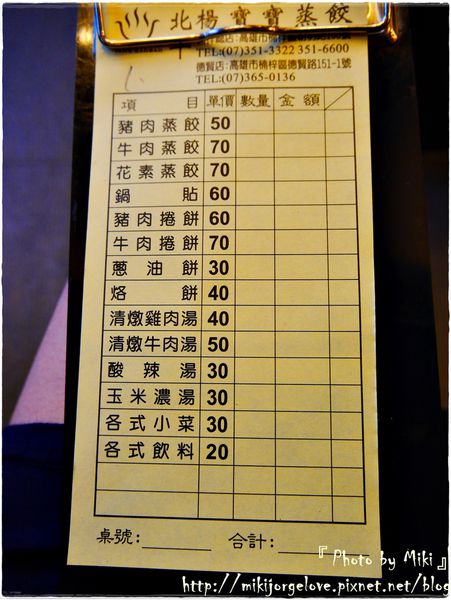 北楊寶寶蒸餃
TEL:(07)351-3322 351-6600
德賢店:高雄市楠梓區德賢路151-1號
TEL:(07)365-0136
項目 單價 數量 金額
豬肉蒸餃 50
牛肉蒸餃 70
花素蒸餃 70
鍋貼 60
豬肉捲餅 60
牛肉捲餅 70
蔥油餅 30
烙餅 40
清燉雞肉湯 40
清燉牛肉湯 50
酸辣湯 30
玉米濃湯 30
各式小菜 30
各式飲料 20
桌號: 合計:
『Photo by Miki』
http://mikijorgelove.pixnet.net/blog